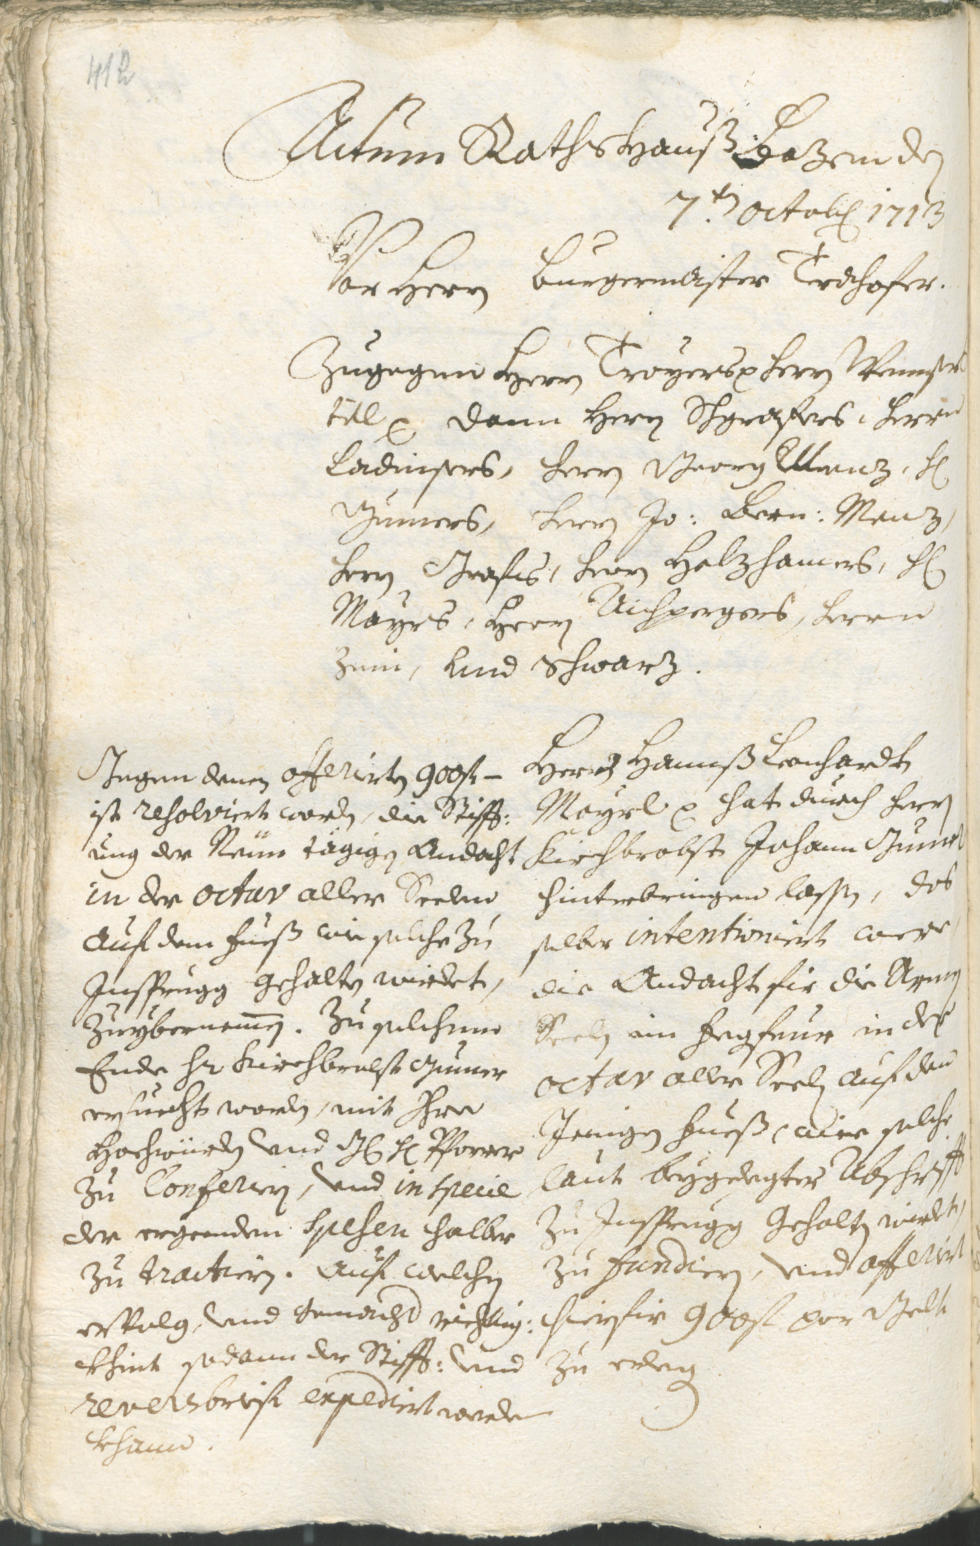 412
Actum Rathshauß Bozen den
7.ten octobr 1713
Vor Herrn Burgermaister
Zugegen Herrn Troyers Herrn
dann Herrn Herrn
Ladinsers, Herrn Georg Menz, H
Gumers, Herrn Jo: Bern: Menz,
Herrn Grafens, Herrn Holzhamers, H
Mayrs, Herrn Aichpergers, Herrn
und Schwarz.
Herr Hannß Leonhardt
Mayrl hat durch Herrn
Kirchbrobst Johann Gumer
hinterbringen lassen, das
selber intentioniert were,
die Andacht fir die Armen
Seelen im Fegfeur in der
octav aller Seelen auf den
Jenigen Fueß, wie solche
laut beygelegter Abschrifft
zu Insprugg gehalten wirdt,
zu fundiern, und offeriert
hierfir 900 f par Gelt
zu erlegen
Gegen denen offerirten 900 f
ist resolviert worden, die Stifft:
ung der Neün tägigen Andacht
in der octav aller Seelen
auf dem Fueß wie solche zu
Insprugg gehalten wirdet,
zuybernemmen. Zu solchem
Ende Hr Kirchbrobst Gumer
ersuecht worden, mit Ihro
Hochwürden und H Pfarrer
zu Conferiern, und in specie
der ergeenden spesen halber
zu tractiern. Auf welchen
erfolg, und gemacht richtig:
khait sodann der Stifft: und
reversbrief expediert werden
khann.